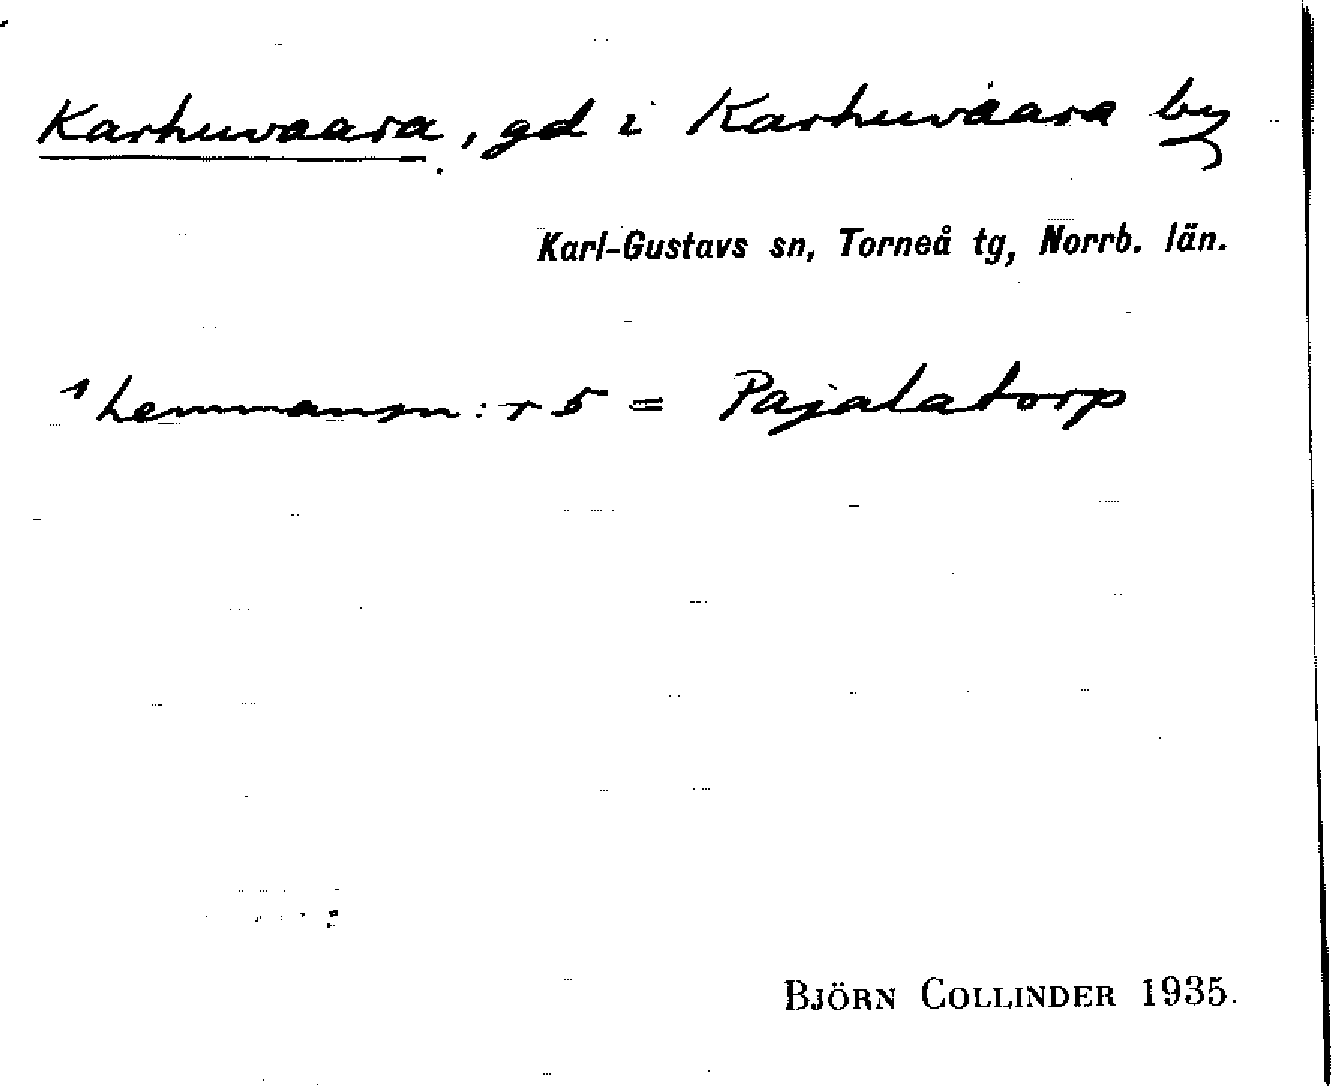 Karhuvaara, gd i Karhuvaara by
Karl-Gustavs sn, Torneå tg, Norrb. län.
1 hemmansn:r 5 = Pajalatorp
BJÖRN COLLINDER 1935.